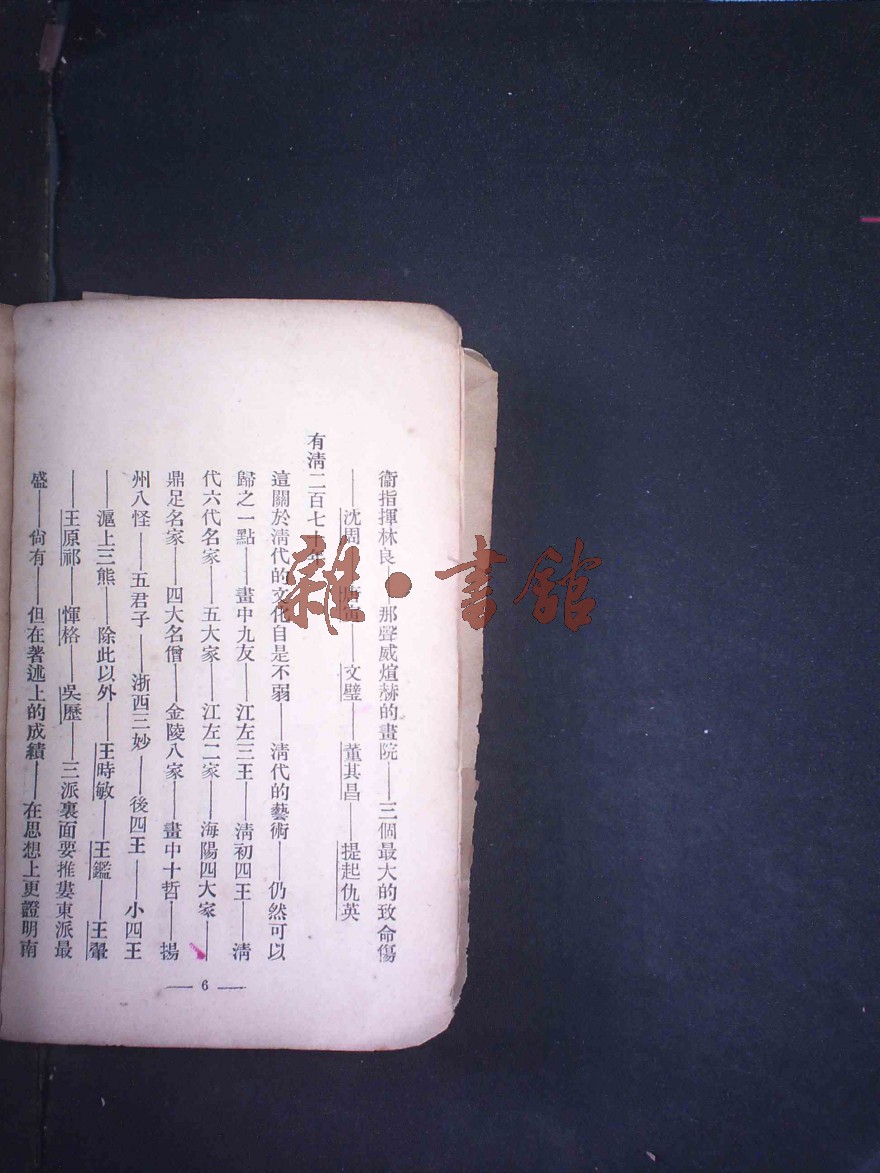 衞指揮林良——那聲威煊赫的畫院——三個最大的致命傷
——沈周————文璧——董其昌——提起仇英
有清二百七十年
這關於清代的文化自是不弱——清代的藝術——仍然可以
歸之一點——畫中九友——江左三王——清初四王——清
代六代名家——五大家——江左二家——海陽四大家——
鼎足名家——四大名僧——金陵八家——畫中十哲——揚
州八怪——五君子——浙西三妙——後四王——小四王
——滬上三熊——除此以外——王時敏——王鑑——王翬
——王原祁——惲格——吳歷——三派裏面要推婁東派最
盛——尙有——但在著述上的成績——在思想上更證明南
— 6 —
雜·書館